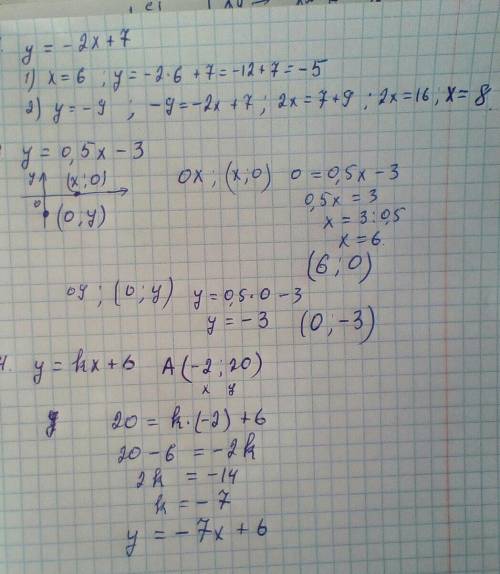 y = -2x+7
1) x=6 ; y=-2·6 +7=-12+7=-5
2) y=-9 ; -9=-2x+7; 2x=7+9 ; 2x=16; x=8.
y = 0,5x-3
y (x;0) 0x; (x;0) 0=0,5x-3
0 0,5x=3
(0;y) x=3:0,5
x=6.
(6;0)
0y; (0;y) y=0,5·0-3
y=-3 (0;-3)
4. y=kx+6 A(-2;20)
x y
20=k·(-2)+6
20-6=-2k
2k=-14
k=-7
y=-7x+6